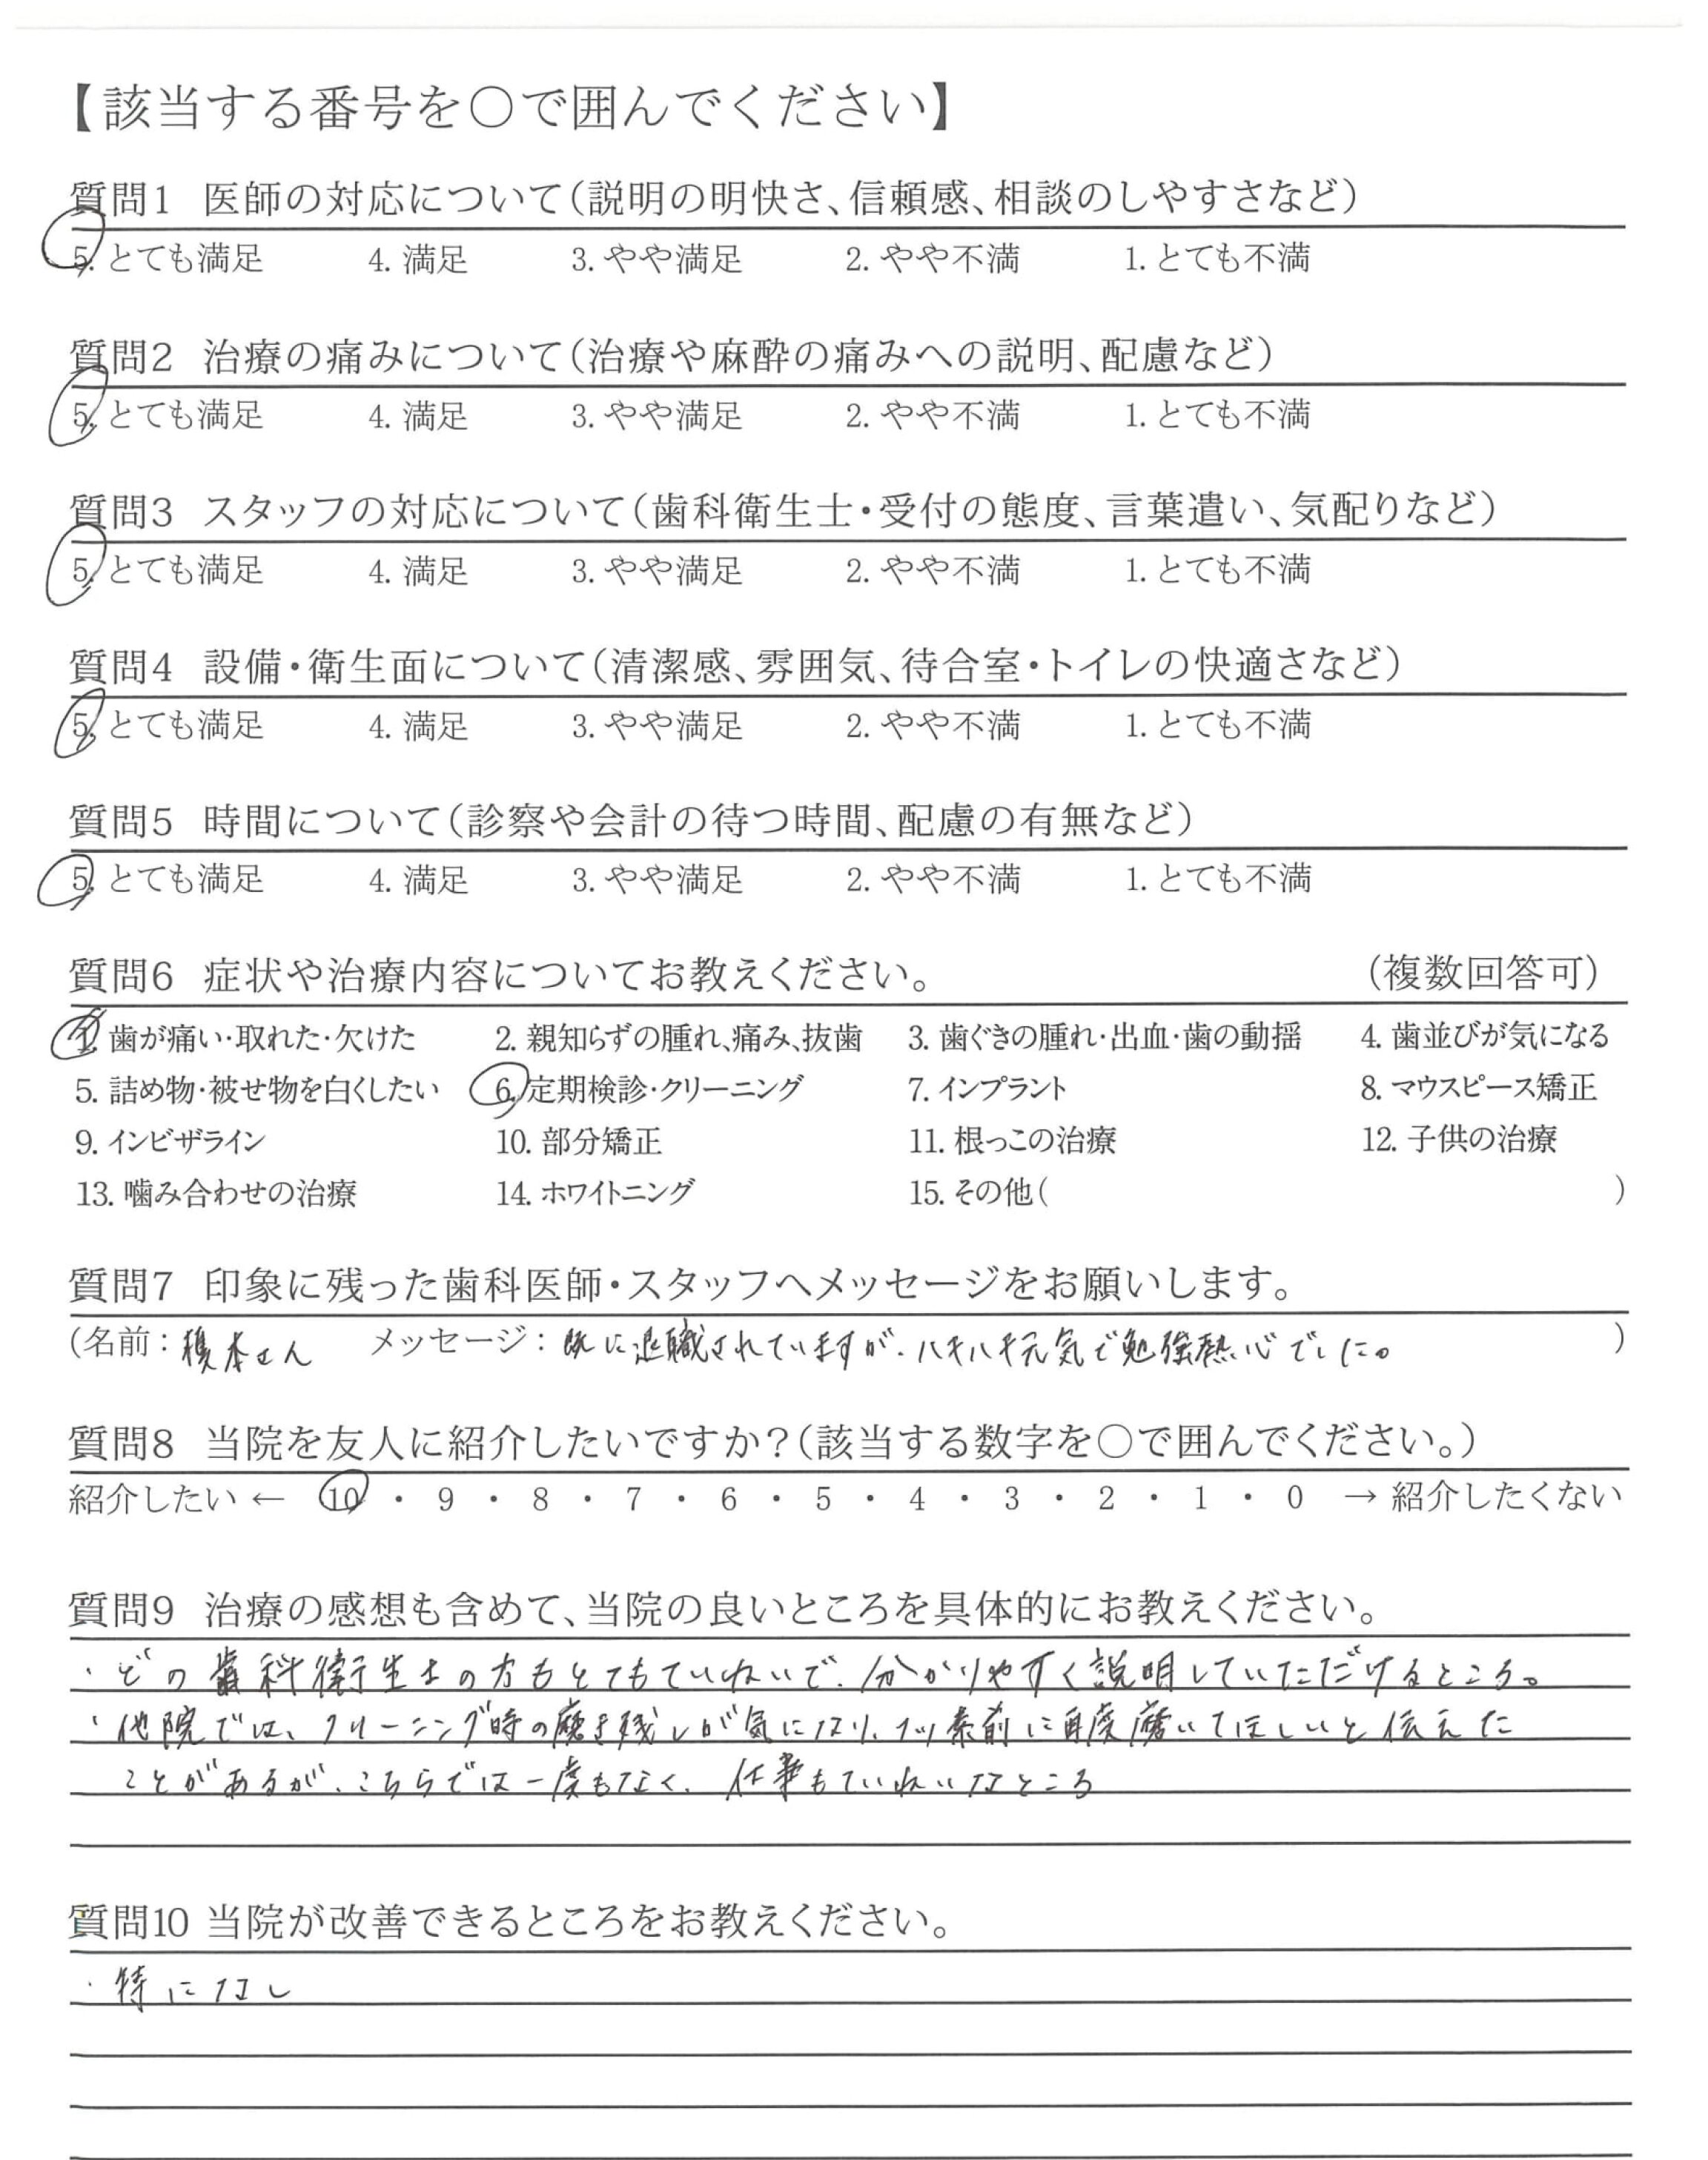 【該当する番号を○で囲んでください】
質問1 医師の対応について(説明の明快さ、信頼感、相談のしやすさなど)
5. とても満足 4. 満足 3. やや満足 2. やや不満 1. とても不満
質問2 治療の痛みについて(治療や麻酔の痛みへの説明、配慮など)
5. とても満足 4. 満足 3. やや満足 2. やや不満 1. とても不満
質問3 スタッフの対応について(歯科衛生士・受付の態度、言葉遣い、気配りなど)
5. とても満足 4. 満足 3. やや満足 2. やや不満 1. とても不満
質問4 設備・衛生面について(清潔感、雰囲気、待合室・トイレの快適さなど)
5. とても満足 4. 満足 3. やや満足 2. やや不満 1. とても不満
質問5 時間について(診察や会計の待つ時間、配慮の有無など)
5. とても満足 4. 満足 3. やや満足 2. やや不満 1. とても不満
質問6 症状や治療内容についてお教えください。 (複数回答可)
1. 歯が痛い・取れた・欠けた 2. 親知らずの腫れ、痛み、抜歯 3. 歯ぐきの腫れ・出血・歯の動揺 4. 歯並びが気になる
5. 詰め物・被せ物を白くしたい 6. 定期検診・クリーニング 7. インプラント 8. マウスピース矯正
9. インビザライン 10. 部分矯正 11. 根っこの治療 12. 子供の治療
13. 噛み合わせの治療 14. ホワイトニング 15. その他( )
質問7 印象に残った歯科医師・スタッフへメッセージをお願いします。
(名前:榎本さん メッセージ:既に退職されていますが、ハキハキ元気で勉強熱心でした。 )
質問8 当院を友人に紹介したいですか?(該当する数字を○で囲んでください。)
紹介したい ← 10 ・ 9 ・ 8 ・ 7 ・ 6 ・ 5 ・ 4 ・ 3 ・ 2 ・ 1 ・ 0 → 紹介したくない
質問9 治療の感想も含めて、当院の良いところを具体的にお教えください。
・どの歯科衛生士の方もとてもていねいで、分かりやすく説明していただけるところ。
・他院では、クリーニング時の磨き残しが気になり、フッ素前に再度磨いてほしいと伝えた
ことがあるが、こちらでは一度もなく、仕事もていねいなところ
質問10 当院が改善できるところをお教えください。
・特になし